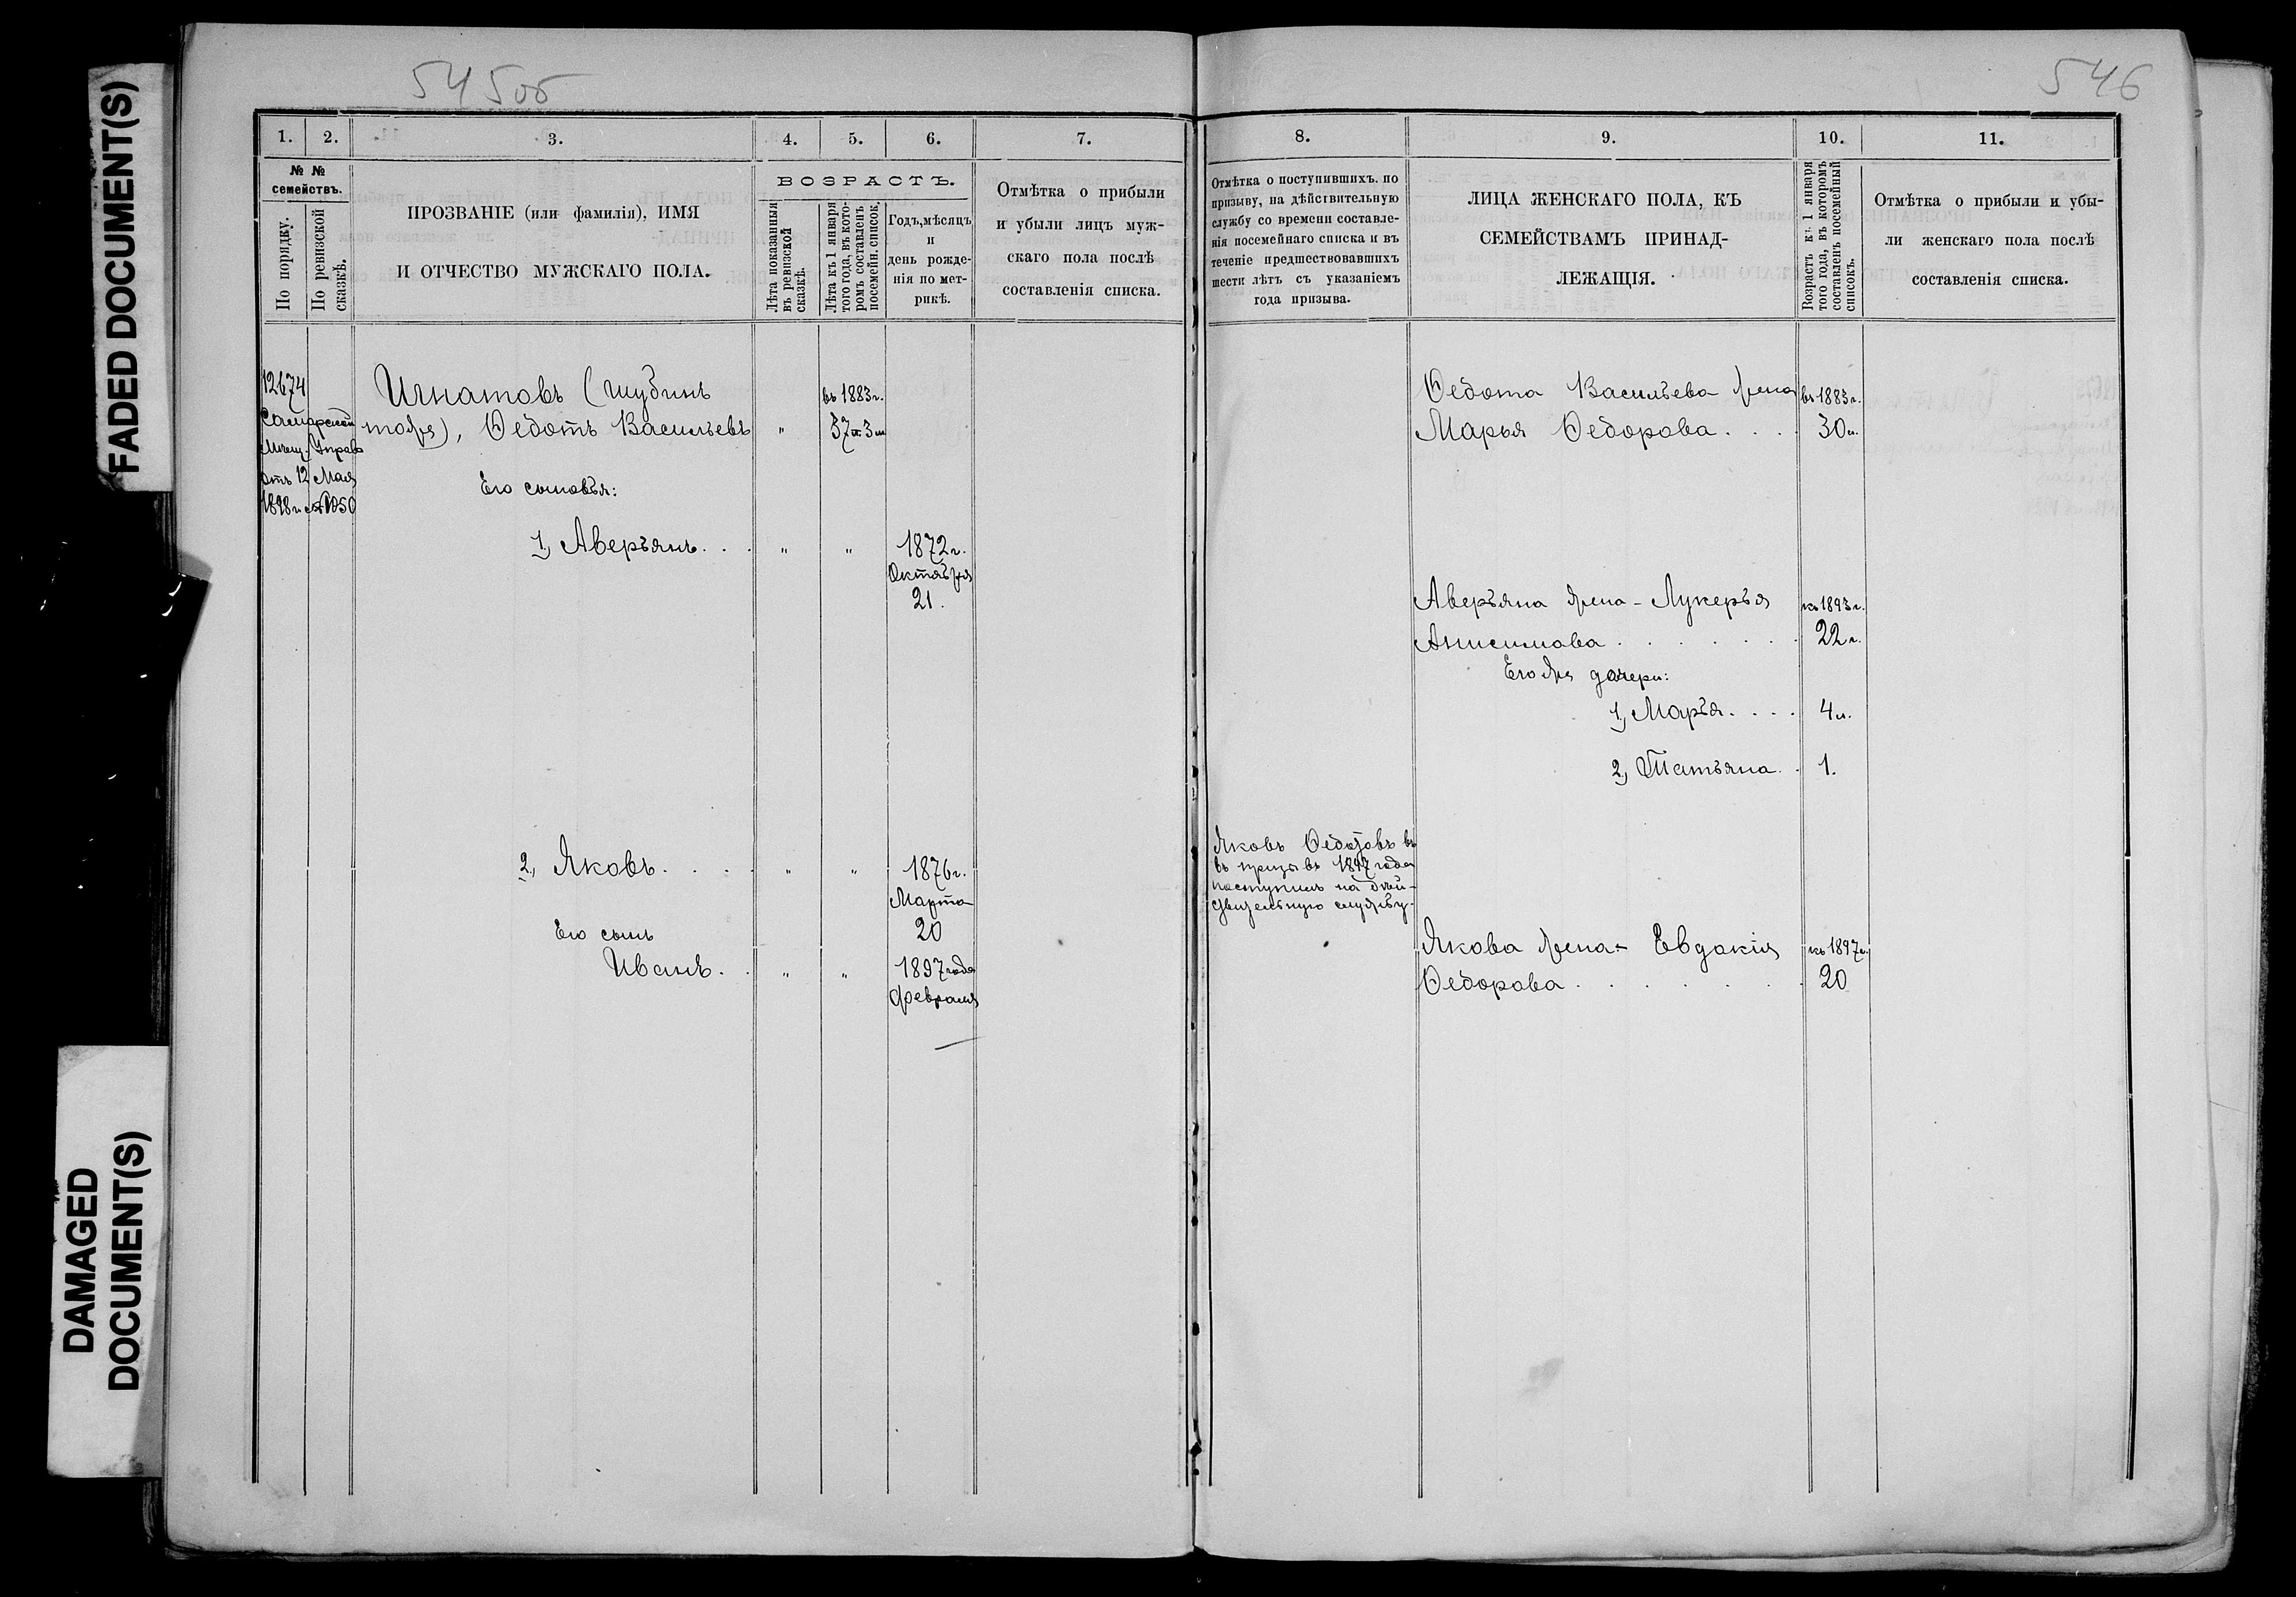 FADED DOCUMENT(S)
DAMAGED
DOCUMENT(S)
545об
1. 2. 3. 4. 5. 6. 7.
№ №
семействъ.
По порядку.
По ревизской
сказкѣ.
ПРОЗВАНІЕ (или фамилія), ИМЯ
И ОТЧЕСТВО МУЖСКАГО ПОЛА.
ВОЗРАСТЪ.
Лѣта показанныя
въ ревизской
сказкѣ.
Лѣта къ 1 января
того года, въ кото-
ромъ составленъ
посемейн. список.
Годъ, мѣсяцъ
и
день рожде-
нія по мет-
рикѣ.
Отмѣтка о прибыли
и убыли лицъ муж-
скаго пола послѣ
составленія списка.
12674
Самарской
Мѣщ. Управ
отъ 12 Мая
1898 г. № 1050
Игнатовъ (Шубинъ
тожъ), Ѳедотъ Васильевъ " въ 1883 г.
37 л. 3 м
Его сыновья:
1, Аверьянъ. . . " " 1872 г.
Октября
21.
2, Яковъ. . . . " " 1876 г.
Марта
20
Его сынъ
Иванъ. . " " 1897 года
Февраля
546
8. 9. 10. 11.
Отмѣтка о поступившихъ. по
призыву, на дѣйствительную
службу со времени составле-
нія посемейнаго списка и въ
теченіе предшествовавшихъ
шести лѣтъ съ указаніемъ
года призыва.
ЛИЦА ЖЕНСКАГО ПОЛА, КЪ
СЕМЕЙСТВАМЪ ПРИНАД-
ЛЕЖАЩІЯ.
Возрастъ къ 1 января
того года, въ которомъ
составленъ посемейный
списокъ.
Отмѣтка о прибыли и убы-
ли женскаго пола послѣ
составленія списка.
Ѳедота Васильева жена въ 1883 г.
Марья Ѳедорова. . . . 30 л.
Аверьяна жена - Лукерья къ 1893 г.
Анисимова . . . . . . . 22 г.
Его же дочери:
1, Марья. . . . 4 л.
2, Татьяна. . 1.
Яковъ Ѳедотовъ въ
въ призывъ 1897 года
поступилъ на дѣй-
ствительную службу.
Якова жена - Евдакія къ 1897 г.
Ѳедорова . . . . . . . 20